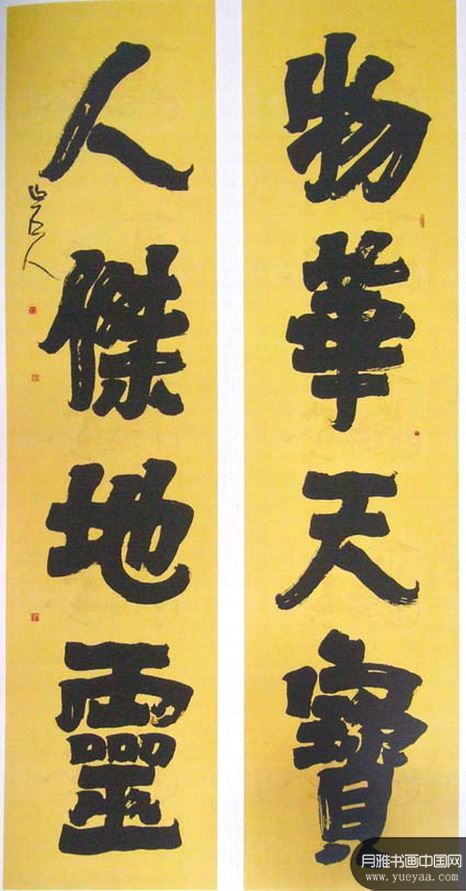 物華天寶
人傑地靈
月雅书画中国网
www.yueyaa.com